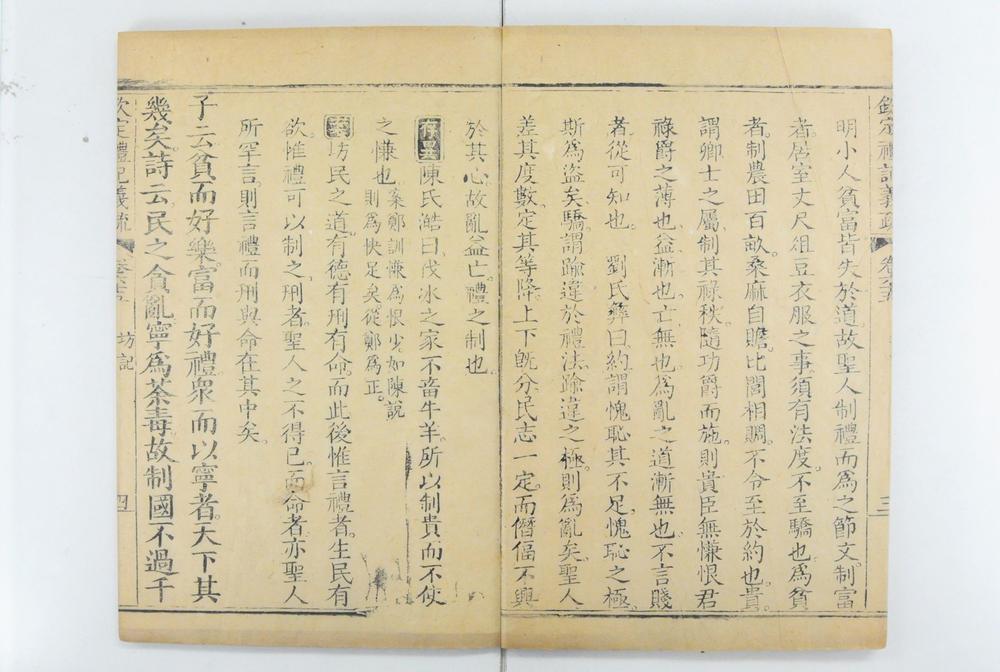 欽定禮記義疏 卷 三
明小人貧富皆失於道故聖人制禮而爲之節文制富
者居室丈尺俎豆衣服之事須有法度不至驕也爲貧
者制農田百畝桑麻自贍比閭相賙不令至於約也貴
謂卿士之屬制其祿秩隨功爵而施則貴臣無慊恨君
祿爵之薄也益漸也亡無也爲亂之道漸無也不言賤
者從可知也 劉氏彝曰約謂愧恥其不足愧恥之極
斯爲盜矣驕謂踰違於禮法踰違之極則爲亂矣聖人
差其度數定其等降上下旣分民志一定而僭偪不興
於其心故亂益亡禮之制也
存異陳氏澔曰伐冰之家不畜牛羊所以制貴而不使
之慊也案鄭訓慊爲恨少如陳說
則爲快足矣從鄭爲正
案坊民之道有德有刑有命而此後惟言禮者生民有
欲惟禮可以制之刑者聖人之不得已而命者亦聖人
所罕言則言禮而刑與命在其中矣
子云貧而好樂富而好禮衆而以寧者天下其
幾矣詩云民之貪亂寧爲荼毒故制國不過千
欽定禮記義疏 卷 坊記 四